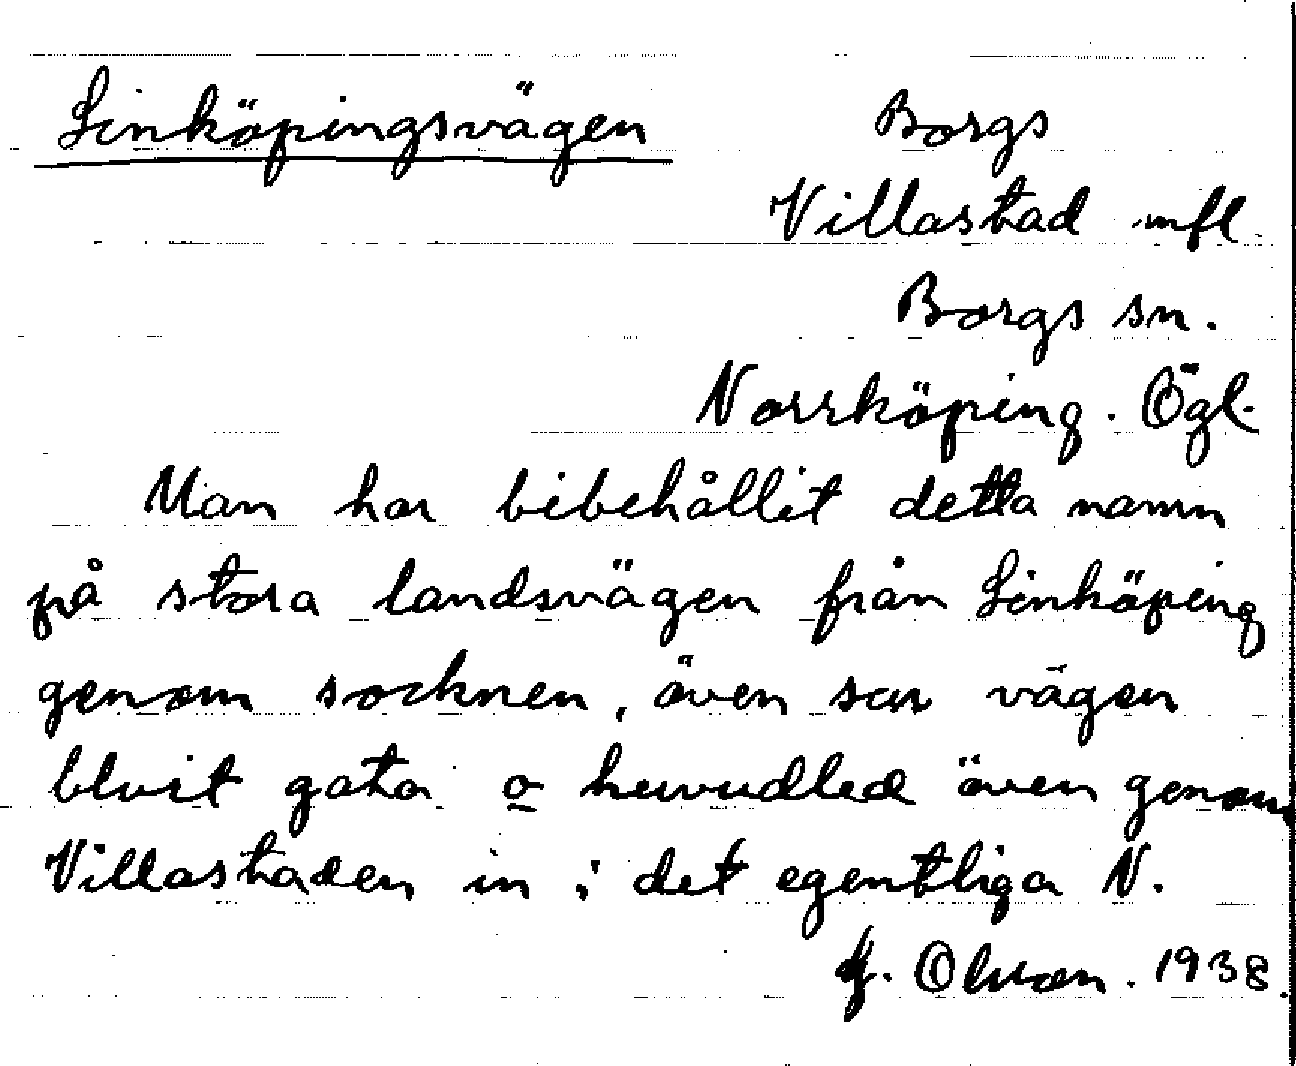 Linköpingsvägen
Borgs
Villastad mfl
Borgs sn.
Norrköping. Ögl.
Man har bibehållit detta namn
på stora landsvägen från Linköping
genom socknen, även sen vägen
blvit gata o huvudled även genom
Villastaden in i det egentliga N.
Olsson. 1938.